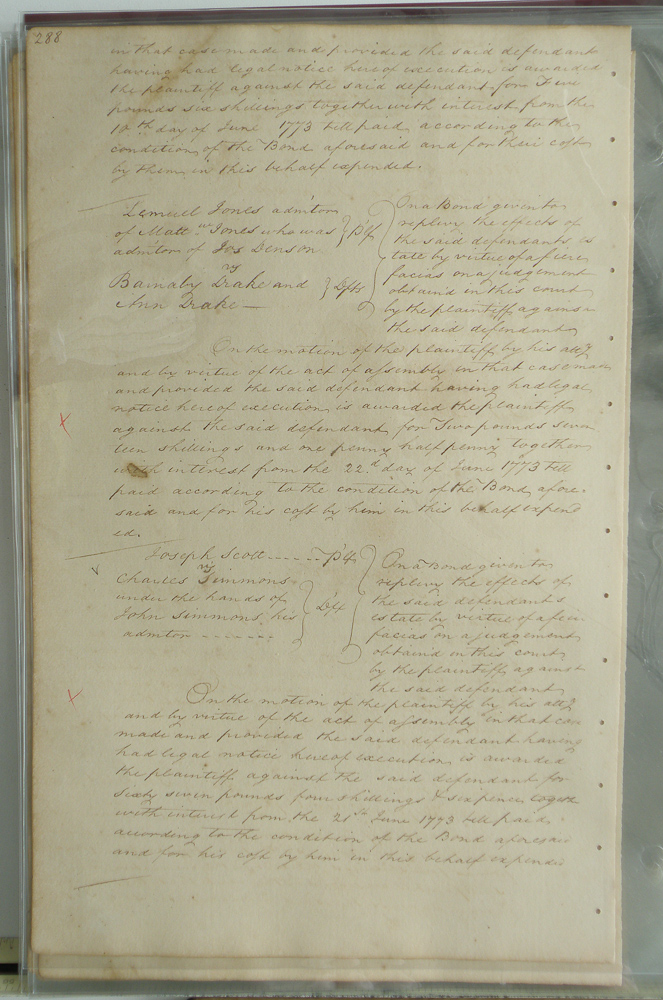 288
in that case made and provided the said defendant
having had legal notice hereof execution is awarded
the plaintiff against the said defendant for Five
pounds six shillings together with interest from the
10th day of June 1773 till paid according to the
condition of the Bond aforesaid and for their cost
by them in this behalf expended.
Lemuel Jones admtor
of Matt.w Jones who was } Plf
admtor of Jos Denson
vs
Barnaby Drake and } Dfts
Ann Drake —
On a Bond given to
replevy the effects of
the said defendants es
tate by virtue of a fieri
facias on a judgement
obtain'd in this court
by the plaintiff against
the said defendant
On the motion of the plaintiff by his atty
and by virtue of the act of assembly in that case made
and provided the said defendant having had legal
notice hereof execution is awarded the plaintiff
against the said defendant for Two pounds seven
teen shillings and one penny half penny together
with interest from the 22.d day of June 1773 till
paid according to the condition of the Bond afore-
said and for his cost by him in this behalf expend
ed.
Joseph Scott ------ Plf
vs
Charles Simmons
under the hands of } Dft
John Simmons, his
admtor -------
On a Bond given to
replevy the effects of
the said defendants
estate by virtue of a fieri
facias on a judgement
obtain'd in this court
by the plaintiff against
the said defendant
On the motion of the plaintiff by his atty
and by virtue of the act of assembly in that case
made and provided the said defendant having
had legal notice hereof execution is awarded
the plaintiff against the said defendant for
sixty seven pounds four shillings & sixpence togeth
with interest from the 21st June 1773 till paid
according to the condition of the Bond aforesaid
and for his cost by him in this behalf expended